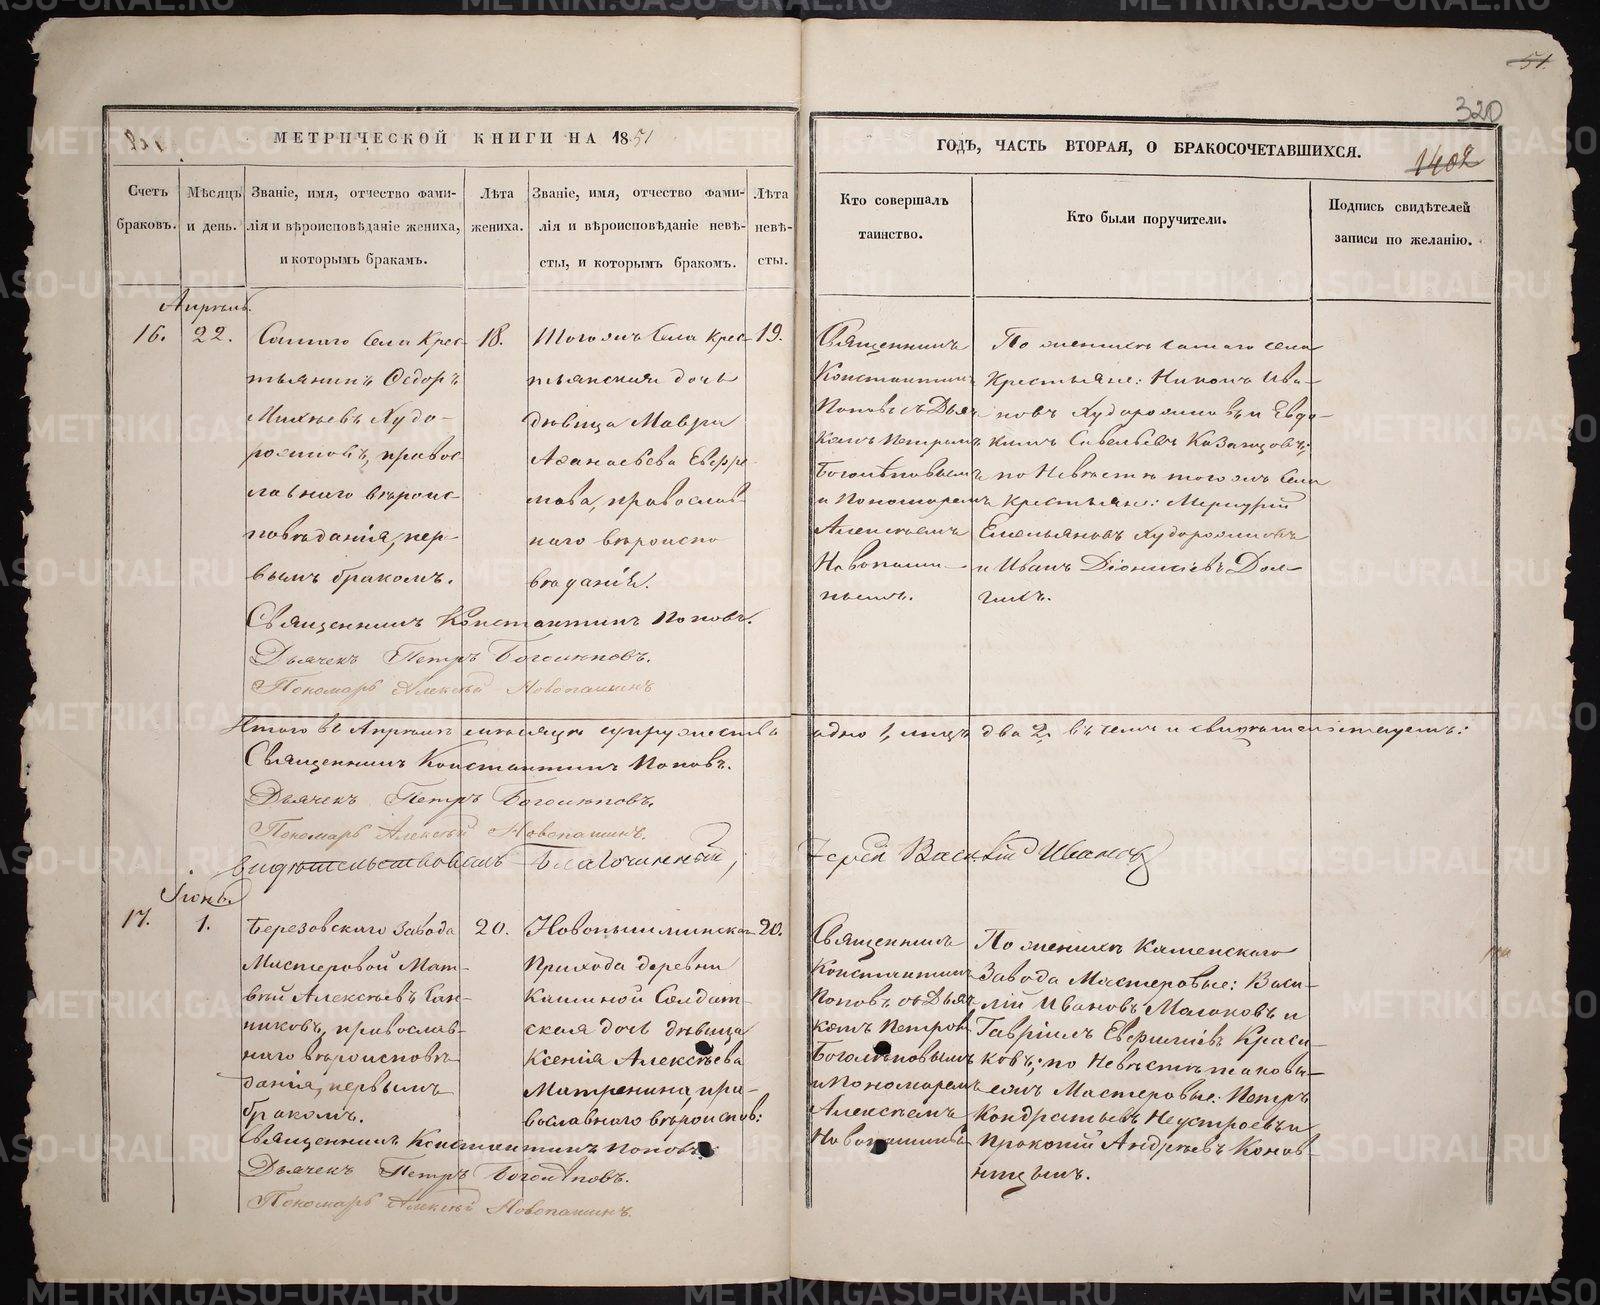 51.
320
МЕТРИЧЕСКОЙ КНИГИ НА 1851
ГОДЪ, ЧАСТЬ ВТОРАЯ, О БРАКОСОЧЕТАВШИХСЯ.
1402
Счетъ браковъ.
Мѣсяцъ и день.
Званіе, имя, отчество фами-
лія и вѣроисповѣданіе жениха,
и которымъ бракамъ.
Лѣта
жениха.
Званіе, имя, отчество фами-
лія и вѣроисповѣданіе невѣ-
сты, и которымъ бракомъ.
Лѣта
невѣ-
сты.
Кто совершалъ
таинство.
Кто были поручители.
Подпись свидѣтелей
записи по желанію.
Апрѣль.
16.
22.
Самаго села Крес-
тьянинъ Ѳедоръ
Михѣевъ Худо-
рожковъ, правос
лавнаго вѣроис-
повѣданія, пер-
вымъ бракомъ.
18.
Тогожъ села крес-
тьянская дочь
дѣвица Мавра
Аѳанасьева
православ-
наго вѣроиспо
вѣданія.
19.
Священникъ
Константинъ
Поповъ съ Дьяч
комъ Петромъ
Боголѣповымъ
и Пономаремъ
Алексѣемъ
Новопаши-
нымъ.
По женихѣ самаго села
Крестьяне: Никонъ Ива-
новъ Худорожковъ и Евдо-
кимъ Савельевъ Казанцовъ;
по Невѣстѣ тогожъ села
Крестьяне: Меркурій
Емельяновъ Худорожковъ
и Иванъ Діонисіевъ Дол-
гихъ.
Священникъ Константинъ Поповъ.
Дьячекъ Петръ Боголѣповъ.
Пономарь Алексѣй Новопашинъ
Итого въ Апрѣлѣ мѣсяцѣ супружества одно 1, лицъ два 2, въ чемъ и свидѣтельствуемъ:
Священникъ Константинъ Поповъ.
Дьячекъ Петръ Боголѣповъ.
Пономарь Алексѣй Новопашинъ.
Свидѣтельствовалъ Благочинный, Іерей Василій Ивановъ
Іюнь.
17.
1.
Березовскаго завода
Мастеровой Мат-
вѣй Алексѣевъ Сан-
никовъ, православ-
наго вѣроисповѣ-
данія, первымъ
бракомъ.
20.
Новопышминскаго
Прихода деревни
Кашиной Солдат-
ская дочь дѣвица
Ксенія Алексѣева
Матренина, пра-
вославнаго вѣроиспов:
20.
Священникъ
Константинъ
Поповъ съ Дьяч
комъ Петромъ
Боголѣповымъ
и Пономаремъ
Алексѣемъ
Новопашинымъ
По женихѣ Каменскаго
Завода Мастеровые: Васи-
лій Ивановъ и
Гавріилъ Краси-
ковъ; по Невѣстѣ таковы-
ежъ Мастеровые: Петръ
Кондратьевъ Неустроевъ и
Прокопій Андреевъ Конов-
ницынъ.
Священникъ Константинъ Поповъ.
Дьячекъ Петръ Боголѣповъ.
Пономарь Алексѣй Новопашинъ.
METRIKI.GASO-URAL.RU